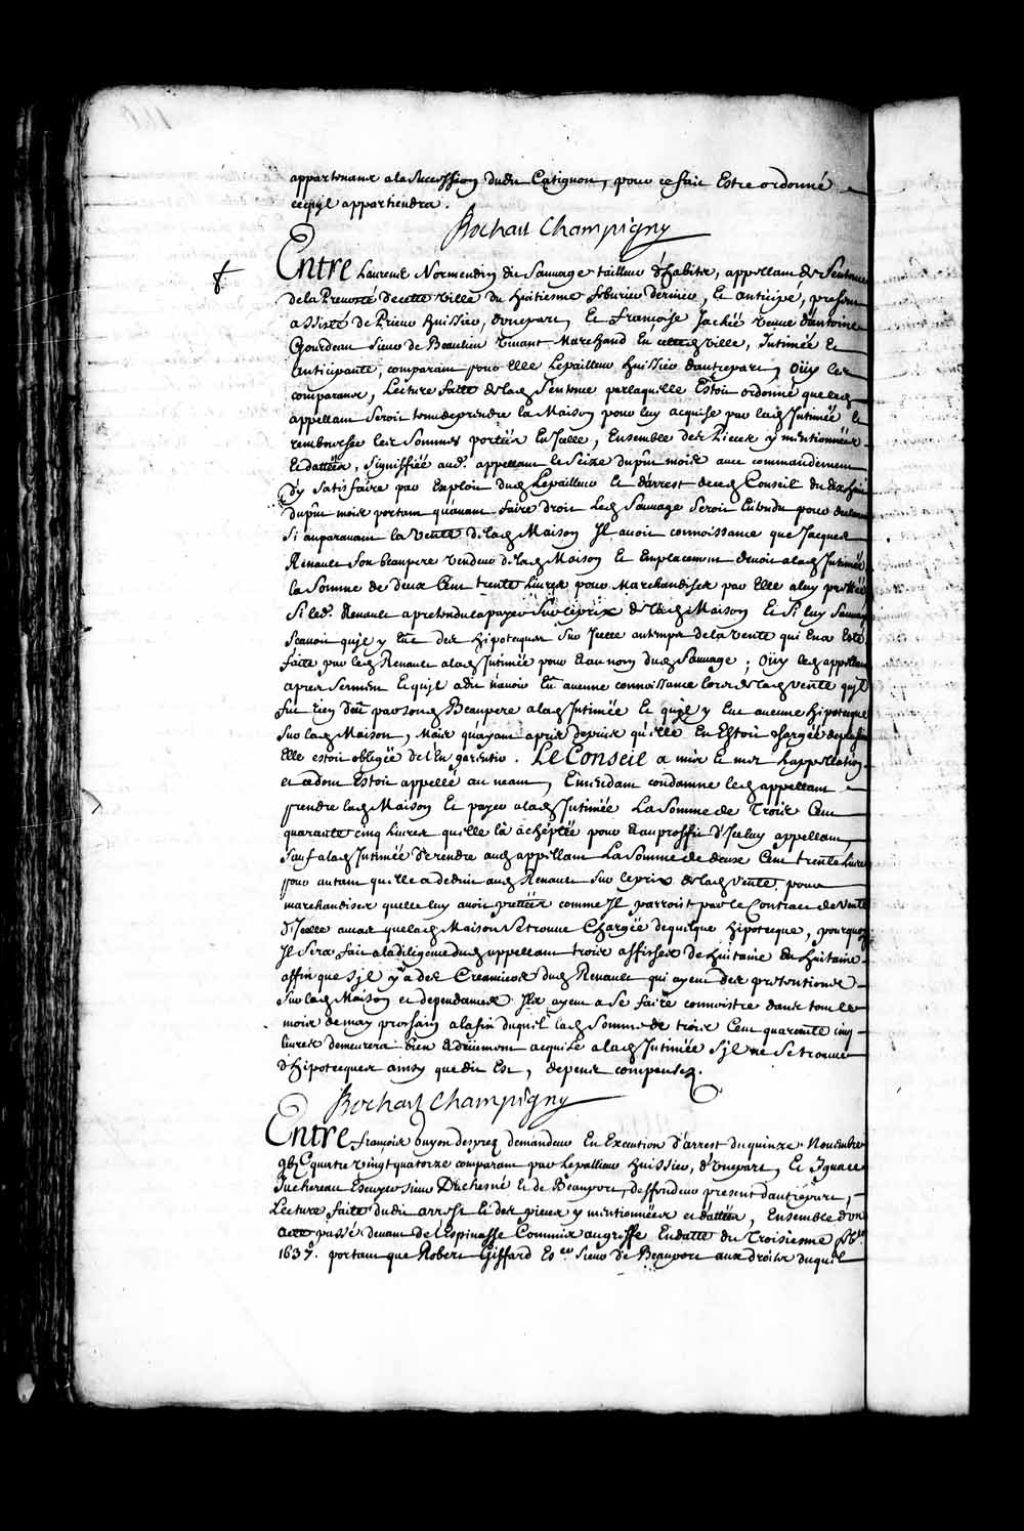 appartenant a la succession dudit Catignon, pour ce fait Estre ordonné
ce qu'il appartiendra.
Bochart Champigny
Entre Laurent Normendin dit Sauvage tailleur d'habits, appellant de Sentence
de la Prevosté de cette ville du huitiesme febvrier dernier, Et anticipé, present
assisté de Prieur huissier, d'une part, Et Françoise Jachée veuve d'antoine
Gourdeau Sieur de Beaulieu vivant Marchand En cette ville, Intimée Et
anticipante, comparant pour Elle Lepailleur huissier d'autre part, Oüy les
comparans, Lecture faite de lad. Sentence par laquelle Estoit ordonné que led.
appellant Seroit tenu de prendre la Maison pour luy acquise par lad. Intimée Et
rembourser les Sommes portées En Icelle, Ensemble des Pieces y mentionnées
Et dattées, Signiffiée aud. appellant le Seize du pnt mois avec commandement
d'y Satisfaire par Exploit dud. Lepailleur Et d'arrest de ced. Conseil du
du pnt mois portant qu'avant faire droit led. Sauvage Seroit Entendu pour
Si auparavant la vente de lad. Maison Il avoit connoissance que Jacques
Renault Son beaupere vendeur de lad. Maison Et Emplacement devoit a lad. Intimée
la Somme de deux Cent trente Livres pour Marchandises par Elle a luy
Si led. Renault a pretendu la payer Sur le prix de lad. Maison Et Si luy Sauvage
Scavoit qu'il y Eut des hipoteques Sur Icelle au temps de la vente qui En a Esté
faite par led. Renault a lad. Intimée pour Et au nom dud. Sauvage; Oüy led. appellant
apres Serment Lequel a dit n'avoir Eu aucune connoissance lors de lad. vente qu'Il
fut rien deu par Sond. Beaupere a lad. Intimée Et qu'Il y Eut aucune hipoteque
Sur lad. Maison, Mais qu'ayant apris depuis qu'elle En Estoit chargée
Elle estoit obligée de l'En garentir. Le Conseil a mis Et met l'appellation
et ce dont Estoit appellé au neant, Emendant condamne led. appellant
prendre lad. Maison Et payer a lad. Intimée La Somme de Trois Cent
quarante cinq Livres qu'elle l'a achéptée pour Et au proffit d'Iceluy appellant,
Sauf a lad. Intimée de rendre aud. appellant La Somme de deux Cent trente Livres
pour autant qu'elle a deduit aud. Renault Sur le prix de lad. vente. pour
marchandises qu'elle luy avoit prettées comme Il parroist par le Contract de vente
d'Icelle au cas que lad. Maison Se trouve Chargée de quelque hipoteque, pourquoy
Il Sera fait a la diligence dud. appellant trois affiches de huitaine En huitaine
affin que s'Il y a des Creanciers dud. Renault qui ayent des pretentions
Sur lad. Maison et dependances Ils ayent a Se faire connoistre dans tout le
mois de may prochain a la fin duquel lad. Somme de trois Cent quarante cinq
livres demeurera bien Et deüement acquise a lad. Intimée S'Il ne Se trouve
d'hipoteques ainsy que dit Est, depens compensez.
Bochart Champigny
Entre françois buyon desprez demandeur En Execution d'arrest du quinze Novembre
gbjC quatre vingt quatorze comparant par Lepallieur huissier, d'une part, Et Ignace
Juchereau Escuyer Sieur Duchesné et de Beauport, deffendeur present d'autre part,
Lecture faite dudit arrest Et des pieces y mentionnées et dattées, Ensemble d'un
Acte passé devant de l'Espinasse Commis au greffe En datte du Troisiesme
1637. portant que Robert Giffard Es.er Sieur de Beauport aux droits duquel